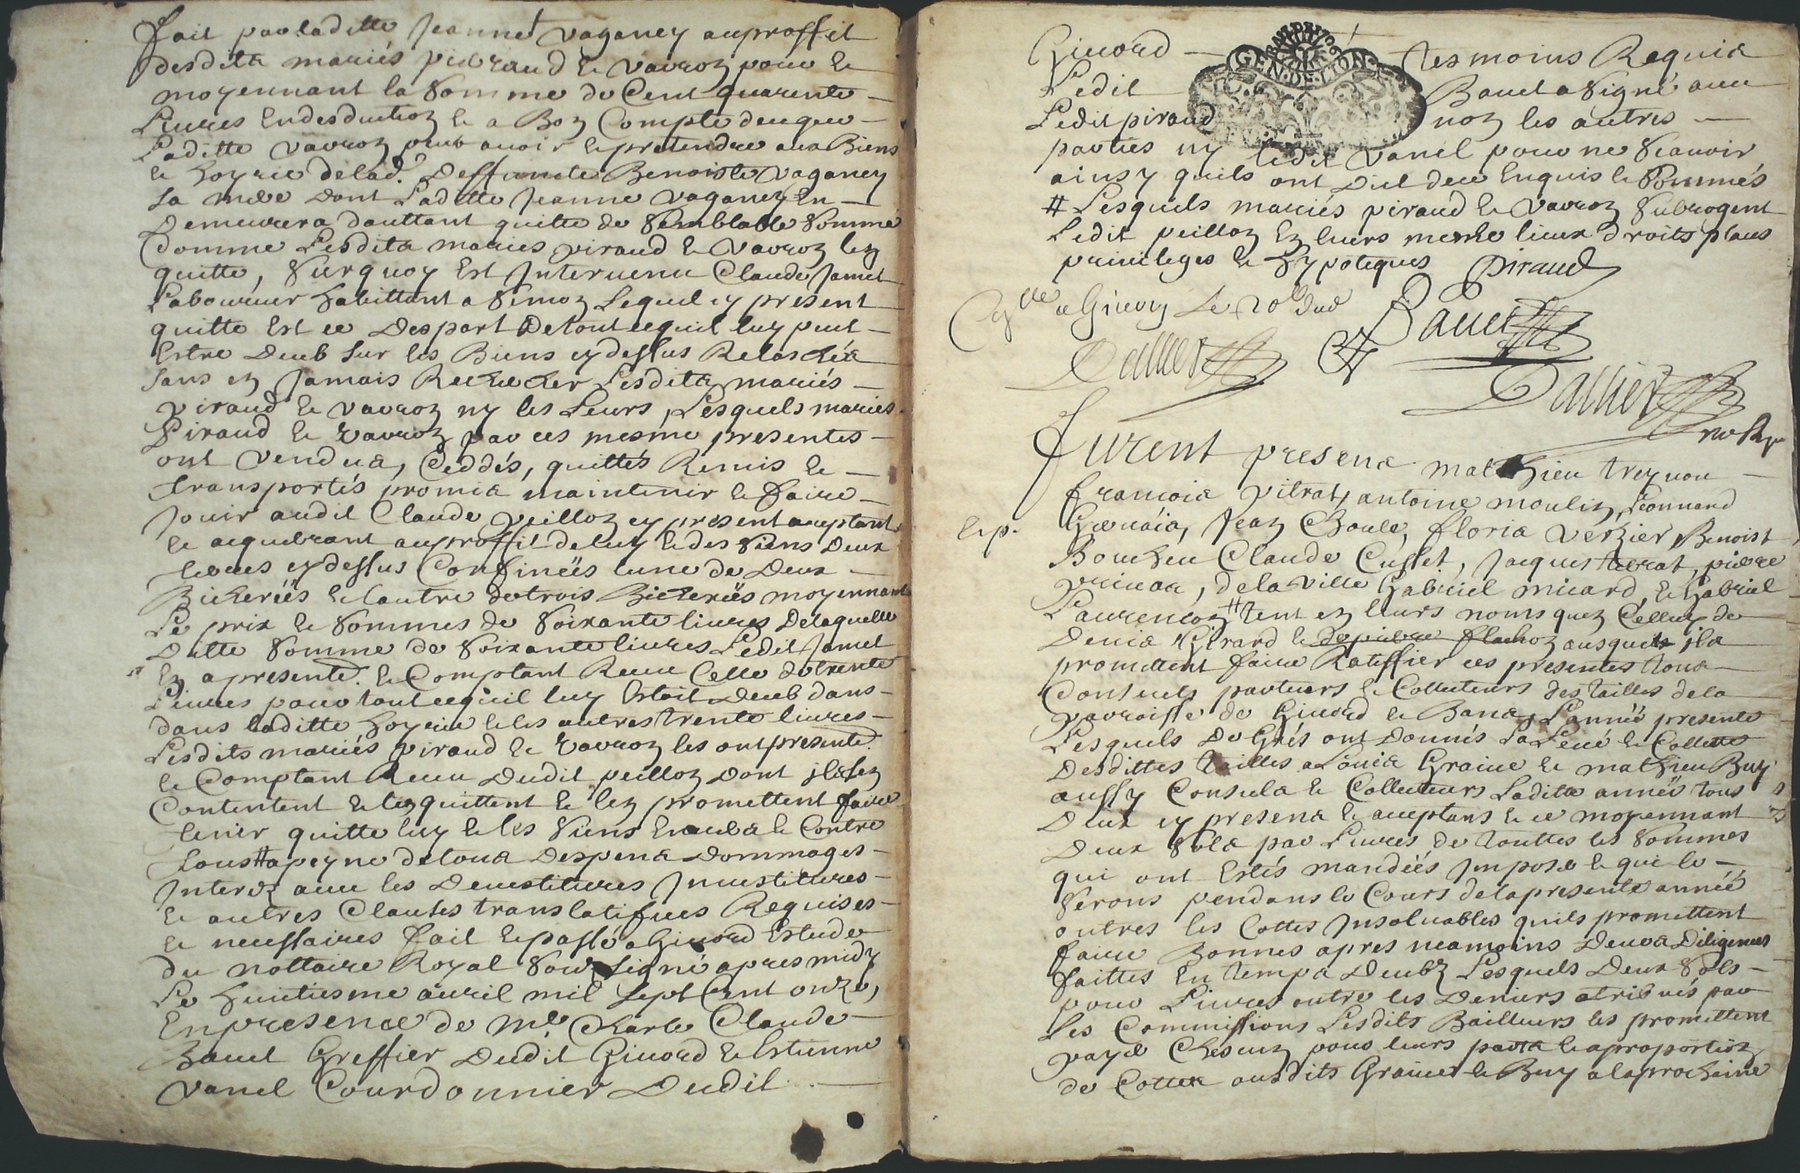 fait par laditte Jeanne vaganey au proffit
desdits mariés piraud & vavroz pour le
moyennant la somme de Cent quarente
Livres En desduction & a Bon Compte de ce que
Laditte vavroz peut avoir & pretendre aux Biens
& hoyrie de lad.e Deffuncte Benoiste vaganey
sa mere Dont Laditte Jeanne vaganey En
Demeurera dauttant quitte de semblable somme
Comme Lesdits mariés piraud & vavroz len
quitte, surquoy Est Intervenu Claude Jamet
Laboureur habittant a simon Lequel cy present
quitte Est ce Despart De tout ce quil luy peut
Estre Deub sur les Biens cy dessus Relaschés
sans en Jamais Rechercher Lesdits mariés
piraud & vavroz ny les Leurs, Lesquels mariés
Piraud & vavroz par ces mesme presentes
ont vendus, Ceddés, quittés Remis &
transportés promis maintenir & faire
Jouir audit Claude peilloz cy present acceptant
& acquerant au proffit de luy & des siens Deux
terres cy dessus Confinées lune de Deux
Bicherées & lautre de trois Bicherées moyennant
Le prix & sommes de soixante livres De laquelle
Ditte somme de soixante livres Ledit Jamet
En a presente.t & Comptant Receu Celle de trente
Livres pour tout ce quil luy Estoit Deub dans
dans laditte hoyrie & les autres trente livres
Lesdits mariés piraud & vavroz les ont presente.t
& Comptant Receu Dudit peilloz Dont ils sen
Contentent & len quittent & len promettent faire
tenir quitte luy & les siens Envers & Contre
tous # a peyne de tous Despens Dommages
Interez avec les Devestitures Investitures
& autres Clauses translatifves Requises
& necessaires fait & passé a Givord Estude
du nottaire Royal soubsigné apres midy
Le huictiesme avril mil sept Cent onze,
En presence de Me Charle Claude
Bauet Greffier Dudit Givord & Estienne
vanel Courdonnier Dudit
Givord tesmoins Requis
GEN. DE LION
Ledit Bauet a signé avec
Ledit piraud non les autres
parties ny ledit vanel pour ne scavoir
ainsy quils ont Dit de ce Enquis & sommés
# Lesquels mariés piraud & vavroz subrogent
Ledit peilloz En leurs mesme lieux droits places
privileges & hypoteques piraud
Con.lle a Givors Le 20e dud
Bauet
Dallier
Dallier
no.re Ro.
Furent presens mathieu treynou
francois vitrat, antoine moulin, Leonnard
exp.
Jean Boule, floris verzier, Benoist
Boucheu Claude Cusset, Jacques terrat, pierre
de la ville Gabriel micard, & Gabriel
Laurencon # tent en leurs noms quen Celluy de
Denis Girard & de pierre flamoz ausquels ils
promettent faire Ratiffier ces presentes tous
Consuels parteurs & Collecteurs des tailles de la
parroisse de Givord & Bans, Lannée presente
Lesquels De Grés ont Donnés La Levé & Collette
Desdittes tailles a Louis Graine & mathieu Buy
aussy Consuls & Collecteurs Ladite année tous
Deux cy presens & acceptans & ce moyennant
Deux sols par Livres de touttes les sommes
qui ont Estés mandées Imposé & qui le
serons pendans le Cours de la presente année
outres les Cottes Insolvables quils promettent
faire Bonnes apres neamoins Deues Diligences
faittes En temps Deubz Lesquels Deux sols
pour Livres outre les Deniers atribués par
les Commissions Lesdits Bailleurs les promettent
payé Chescun pour leurs parts & a proportion
de Cottes ausdits Graine & Buy a la prochaine